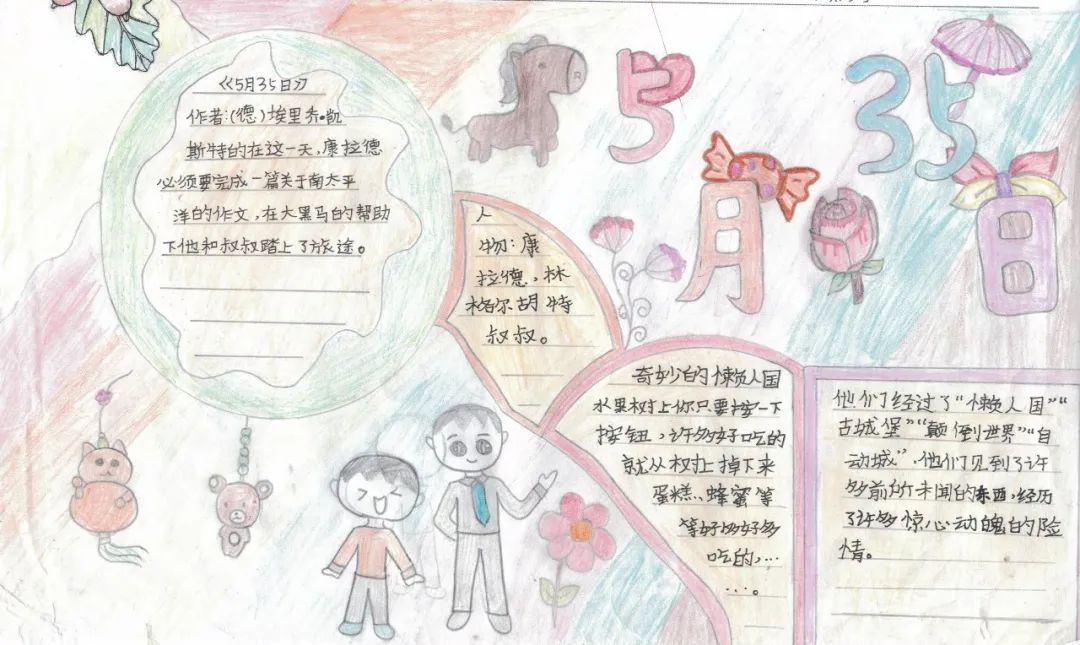 《5月35日》
作者:(德)埃里希·凯
斯特的在这一天,康拉德
必须要完成一篇关于南太平
洋的作文,在大黑马的帮助
下他和叔叔踏上了旅途。
5月35日
人
物:康
拉德,林
格尔胡特
叔叔。
奇妙的懒人国
水果树上你只要按一下
按钮,许多好吃的
就从树上掉下来
蛋糕、蜂蜜等
等好多好多
吃的,…
…。
他们经过了“懒人国”“
古城堡”“颠倒世界”“自
动城”,他们见到了许
多前所未闻的东西,经历
了许多惊心动魄的险
情。